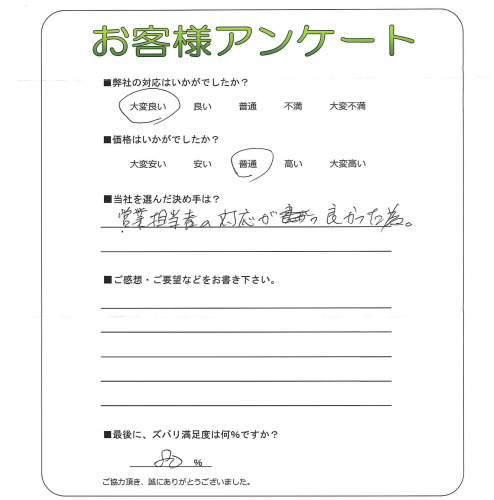 お客様アンケート
■弊社の対応はいかがでしたか？
大変良い 良い 普通 不満 大変不満
■価格はいかがでしたか？
大変安い 安い 普通 高い 大変高い
■当社を選んだ決め手は？
営業担当者の対応が良かった為。
■ご感想・ご要望などをお書き下さい。
■最後に、ズバリ満足度は何%ですか？
%
ご協力頂き、誠にありがとうございました。